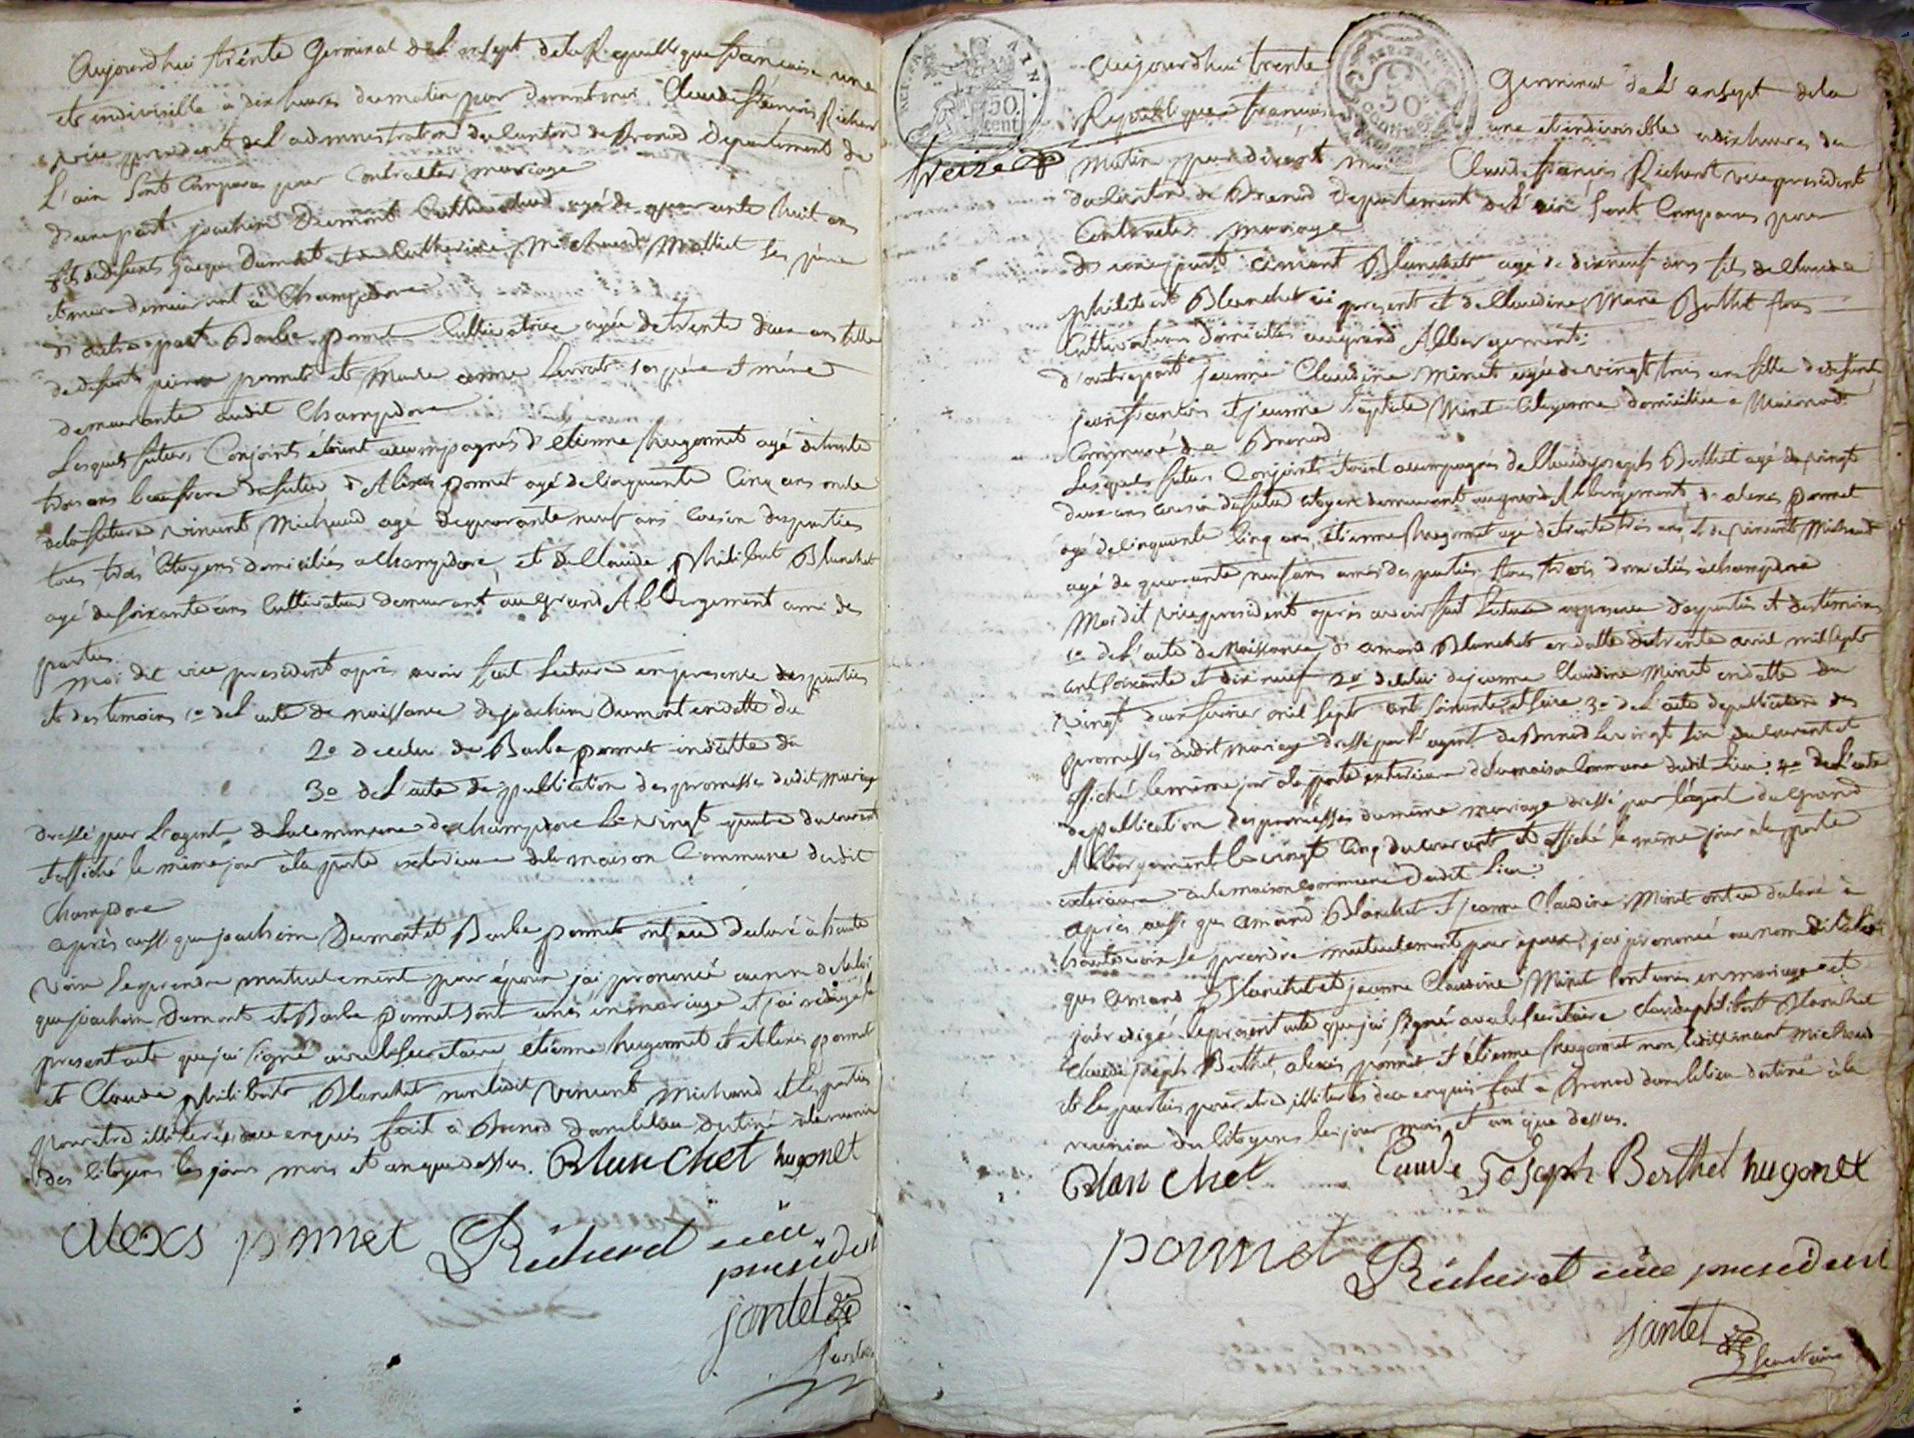 Aujourdhui trente Germinal de L'an sept de la Republique francaise une
et indivisible a dix heures du matin par devant moi Claude francois Richerd
vice president de L'administration du Canton de Brenod Departement de
L'ain sont Comparus pour Contracter mariage
d'une part joachim Dumont Cultivateur agé de quarante huit ans
fils de defunts jacque Dumont et de Catherine Michaud Molliet ses père
et mere demeurant à Champdore
d'autre part Barbe ponnet Cultivatrice agée de trente deux ans fille
de defunts pierre ponnet et Marie anne Livrat ses père et mère
demeurante audit Champdore
Lesquels futurs Conjoints étoient accompagnés d'etienne hugonnet agé de trente
trois ans beaufrere du futur d'Alexis ponnet agé de Cinquante Cinq ans oncle
de la future vincent Michaud agé de quarante neuf ans Cousin des parties
tous trois Citoyens domiciliés a Champdore, et de Claude philibert Blanchet
agé de soixante ans Cultivateur demeurant au Grand Abbergement ami des
parties.
Moi dit vice president après avoir fait Lecture en presence des parties
et des temoins 1º de L'acte de naissance de joachim Dumont en datte du
2º de celui de Barbe ponnet en datte du
3º de L'acte de publication des promesses dudit mariage
dressé par L'agent de la Commune de Champdore Le vingt quatre du courant
et affiché le même jour à la porte exterieure de la maison Commune dudit
Champdore
après aussi que joachim Dumont et Barbe ponnet ont eu declaré à haute
voix se prendre mutuelement pour époux j'ai prononcé au nom de la loi
que joachim Dumont et Barbe ponnet sont unis en mariage et j'ai redigé le
present acte que j'ai signé avec le secretaire étienne hugonnet et alexis ponnet
et Claude philibert Blanchet non ledit vincent Michaud et les parties
pour etre illiteres de ce enquis fait à Brenod dans le lieu destiné à la reunion
des citoyens les jour mois et an que dessus. Blanchet hugonet
alexs ponnet Richerd vice
president
jantet
secretaire
ACT. ET
AIN.
50
cent
Aujourdhui trente Germinal de L'an sept de la
Republique francaise une et indivisible a dix heures du
treize
matin par devant moi Claude francois Richerd vice president
du Canton de Brenod Departement de L'ain sont Comparus pour
Contracter mariage
d'une part amant Blanchet agé de dixneuf ans fils de Claude
philibert Blanchet ici present et de Claudine Marie Berthet tous
Cultivateurs domiciliés au grand Abbergement.
d'autre part jeanne Claudine Minet agée de vingt trois ans fille de defunts
jean francois et jeanne baptiste Minet Citoyenne domiciliée a Macornod
Commune de Brenod
Lesquels futurs Conjoints étoient accompagnés de Claude joseph Berthet agé de vingt
deux ans cousin du futur citoyen demeurant au grand Abbergement, d'alexis ponnet
agé de cinquante Cinq ans, étienne hugonnet agé de trente trois ans, et de vincent Michaud
agé de quarante neuf ans amis des parties tous trois domiciliés à champdore
Moi dit vice president après avoir fait Lecture en presence des parties et des temoins
1º de L'acte de Naissance d'amand Blanchet en datte du trente avril mil sept
cent soixante et dix neuf 2º de celui de jeanne Claudine Minet en datte du
vingt deux fevrier mil sept cent soixante et seize 3º de L'acte de publication des
promesses dudit mariage dressé par L'agent de Brenod Le vingt six du courant et
affiché le même jour à la porte exterieure de la maison Commune dudit Lieu. 4º de L'acte
de publication des promesses du même mariage dressé par l'agent du grand
Abbergement le vingt cinq du courant et affiché le même jour à la porte
exterieure de la maison commune dudit Lieu.
après aussi que amand Blanchet et jeanne Claudine Minet ont eu declaré à
haute voix se prendre mutuelement pour époux, j'ai prononcé au nom de la loi
que amand Blanchet et jeanne Claudine Minet sont unis en mariage et
j'ai redigé le present acte que j'ai signé avec le secretaire Claude philibert Blanchet
Claude joseph Berthet, alexis ponnet et étienne hugonnet non ledit vincent Michaud
et les parties pour etre illiteres de ce enquis fait a Brenod dans le lieu destiné à la
reunion des Citoyens les jour mois et an que dessus.
Blanchet Claude Joseph Berthet hugonet
ponnet Richerd vice president
jantet
secretaire